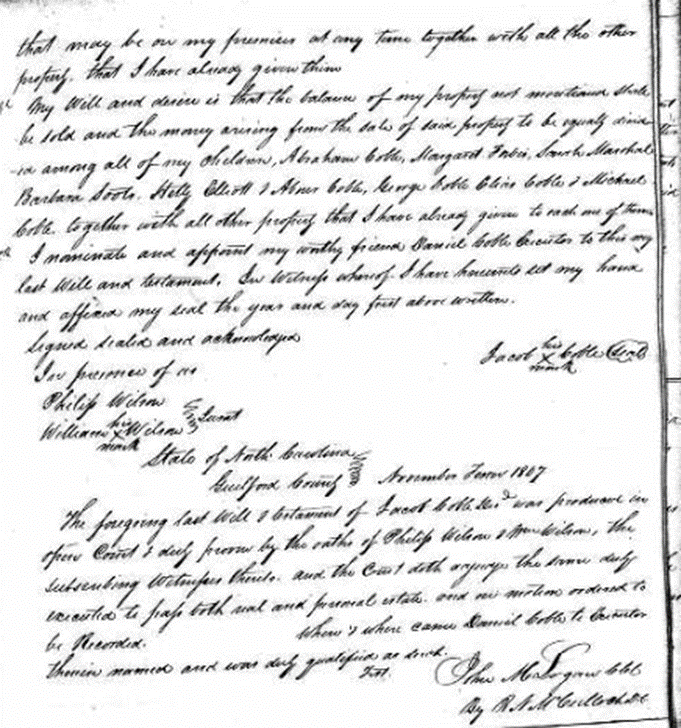 that may be on my premises at any time together with all the other
property. that I have already given them
My Will and desire is that the balance of my property not mentioned shall
be sold and the money arising from the sale of said property to be equally divid
-ed among all of my children, Abraham Coble, Margaret Forbis, Sarah Marshal
Barbara Soots. Hetty Elliott & Abner Coble, George Coble Elias Coble & Michael
Coble. together with all other property that I have already given to each one of them
I nominate and appoint my worthy friend Daniel Coble Executor to this my
last Will and testament. In Witness whereof I have hereunto set my hand
and affixed my seal the year and day first above written.
Signed sealed and acknowledged
In presence of us
Jacob his X mark Coble (Seal)
Philip Wilson
William his X mark Wilson } Jurat
State of North Carolina
Guilford County } November Term 1847
The foregoing last Will & testament of Jacob Coble Decd was produced in
open Court & duly proven by the oaths of Philip Wilson & Wm Wilson, the
subscribing Witnesses thereto. and the Court doth adjudge the same duly
executed to pass both real and personal estate. and on motion ordered to
be Recorded. Where & where came Daniel Coble to Executor
therein named and was duly qualified as such.
Test. John M Logan Clk
By R N McCulloch D.C.